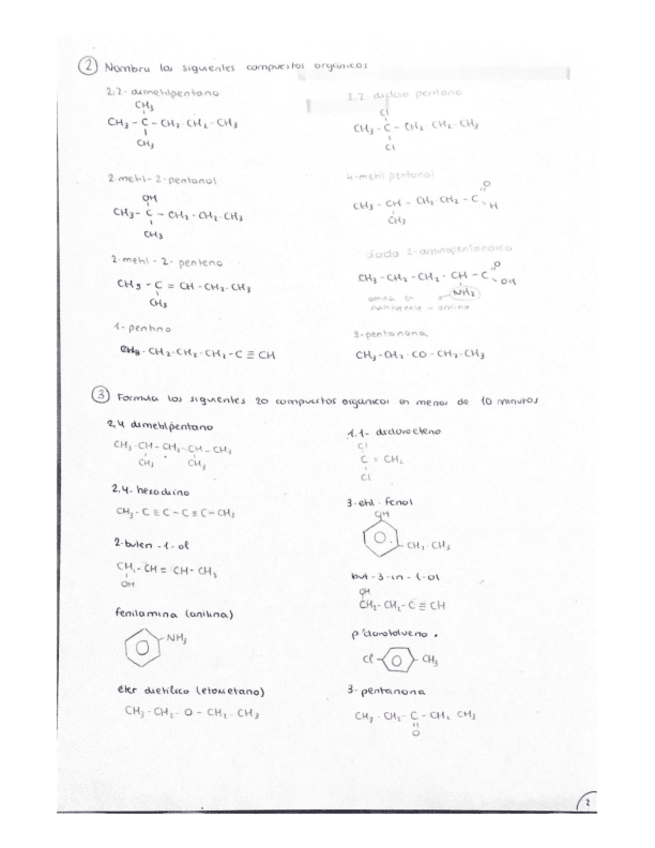 2 Nombra los siguientes compuestos orgánicos
2,2-dimetilpentano
CH3
CH3 - C - CH2 - CH2 - CH3
CH3
2,2 dicloro pentano
Cl
CH3 - C - CH2 - CH2 - CH3
Cl
2-metil-2-pentanol
OH
CH3 - C - CH2 - CH2 - CH3
CH3
4-metil pentanal
CH3 - CH - CH2 CH2 - C O H
CH3
2-metil-2-penteno
CH3 - C = CH - CH2 - CH3
CH3
ácido 2-aminopentanoico
CH3 - CH2 - CH2 - CH - C O OH
NH2
amino
1-pentino
CH3 - CH2 - CH2 - CH2 - C ≡ CH
3-pentanona
CH3 - CH2 - CO - CH2 - CH3
3 Formula los siguientes 20 compuestos orgánicos en menos de 10 minutos
2,4 dimetilpentano
CH3 - CH - CH2 - CH - CH3
CH3 CH3
1,1-dicloroeteno
Cl
C = CH2
Cl
2,4-hexadiino
CH3 - C ≡ C - C ≡ C - CH3
3-etil-fenol
OH
CH2 - CH3
2-buten-1-ol
CH2 - CH = CH - CH3
OH
but-3-in-1-ol
OH
CH2 - CH2 - C ≡ CH
fenilamina (anilina)
NH2
p-clorotolueno.
Cl CH3
éter dietílico (etoxietano)
CH3 - CH2 - O - CH2 - CH3
3-pentanona
CH3 - CH2 - C - CH2 CH3
O
2